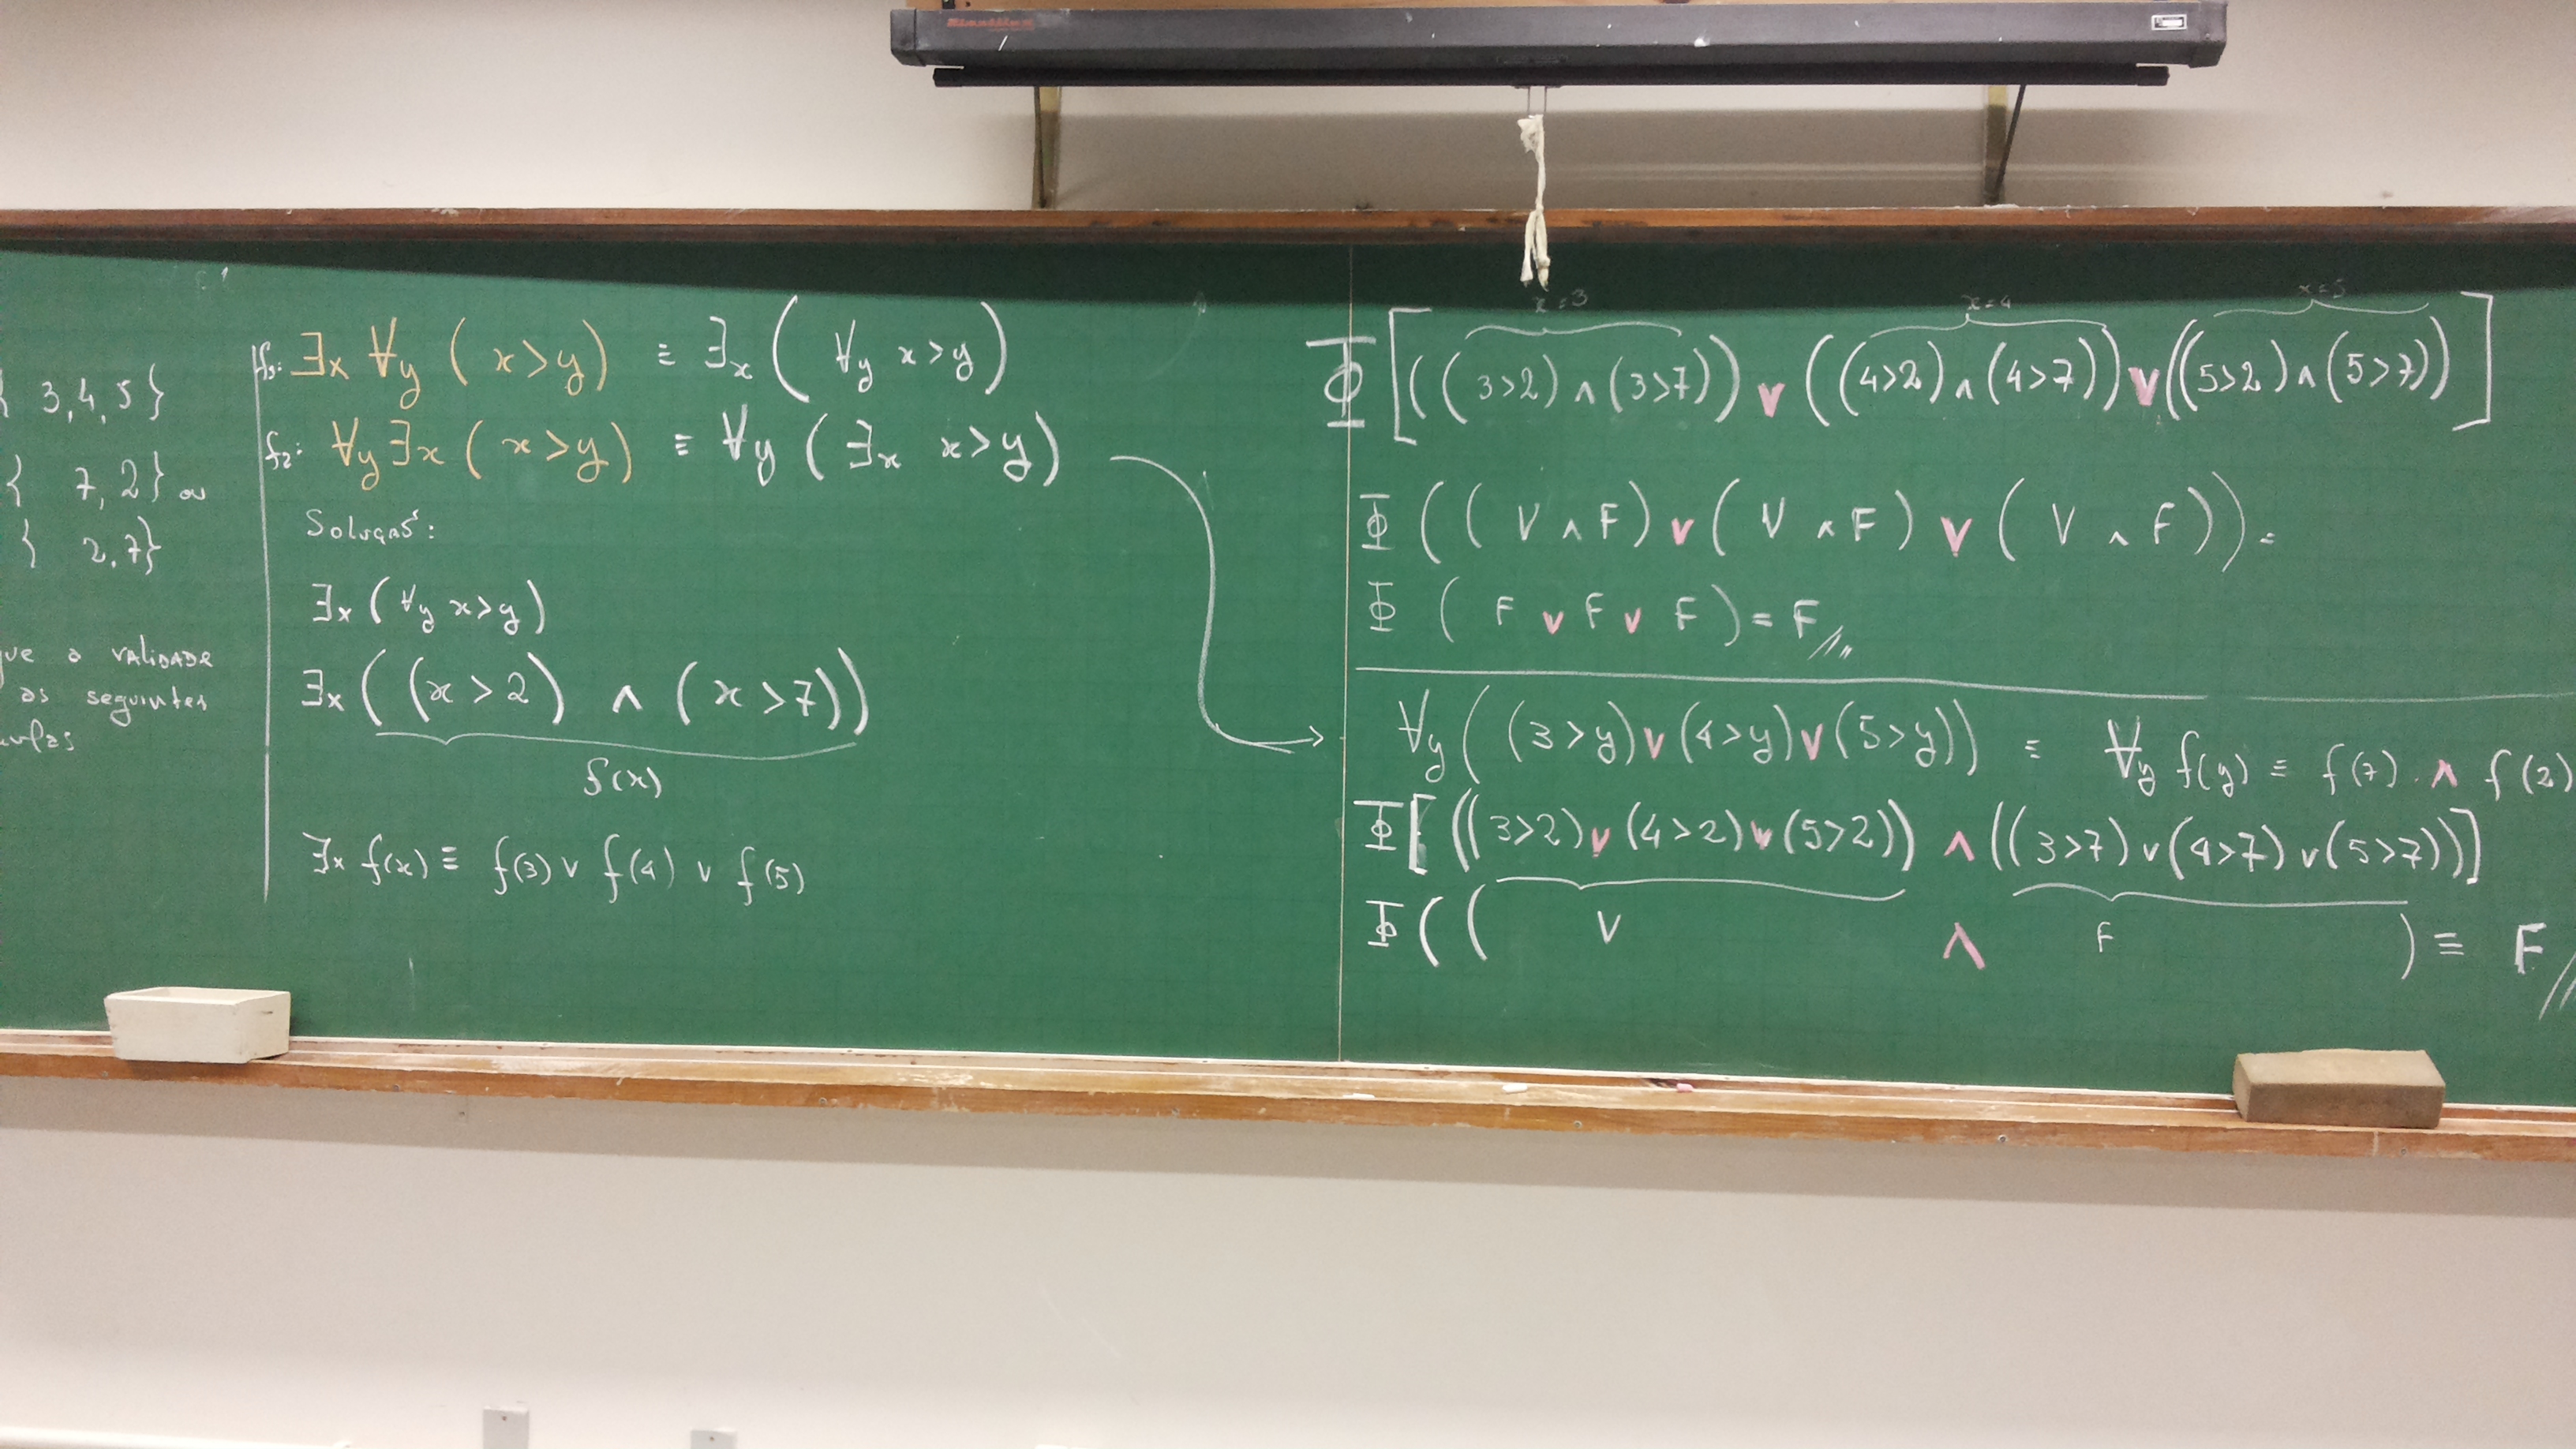 { 3,4,5 }
{ 7, 2} ou
{ 2,7}
que a validade
as seguintes
f1: ∃x ∀y ( x>y) ≡ ∃x ( ∀y x>y)
f2: ∀y ∃x ( x>y) ≡ ∀y ( ∃x x>y)
Solução:
∃x ( ∀y x>y)
∃x ( (x > 2) ∧ ( x >7))
f(x)
∃x f(x) ≡ f(3) ∨ f(4) ∨ f(5)
x=3 x=4 x=5
Φ[((3>2) ∧ (3>7)) ∨ ((4>2) ∧ (4>7)) ∨ ((5>2) ∧ (5>7))]
Φ (( V ∧ F) ∨ ( V ∧ F) ∨ ( V ∧ F)) =
Φ ( F ∨ F ∨ F ) = F //
∀y ( (3>y) ∨ (4>y) ∨ (5>y)) ≡ ∀y f(y) ≡ f(7) ∧ f(2)
Φ[ ((3>2) ∨ (4>2) ∨ (5>2)) ∧ ((3>7) ∨ (4>7) ∨ (5>7))]
Φ (( V ∧ F ) ≡ F //